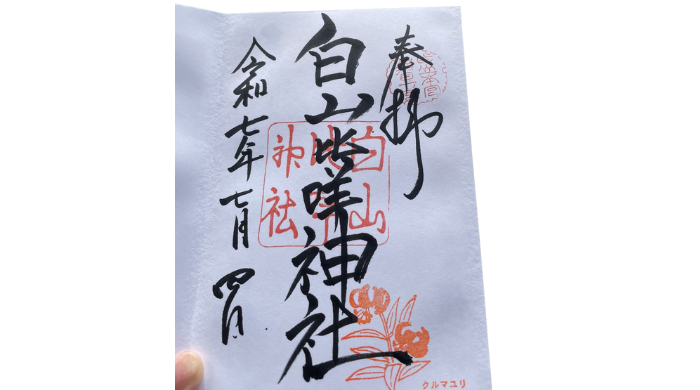 奉拝
白山比咩神社
令和七年七月四日
白山
比咩
神社
クルマユリ